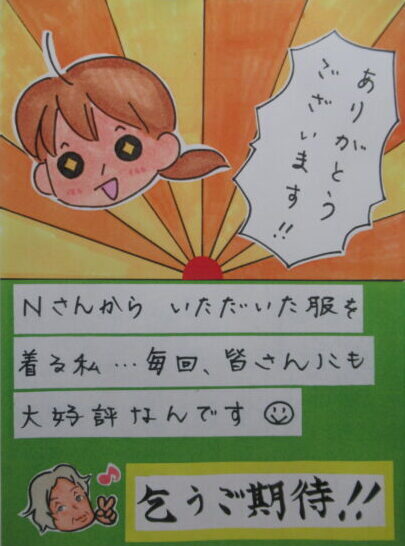 ありがとう
ございます!!
Nさんから いただいた服を
着る私…毎回、皆さんにも
大好評なんです☺
乞うご期待!!